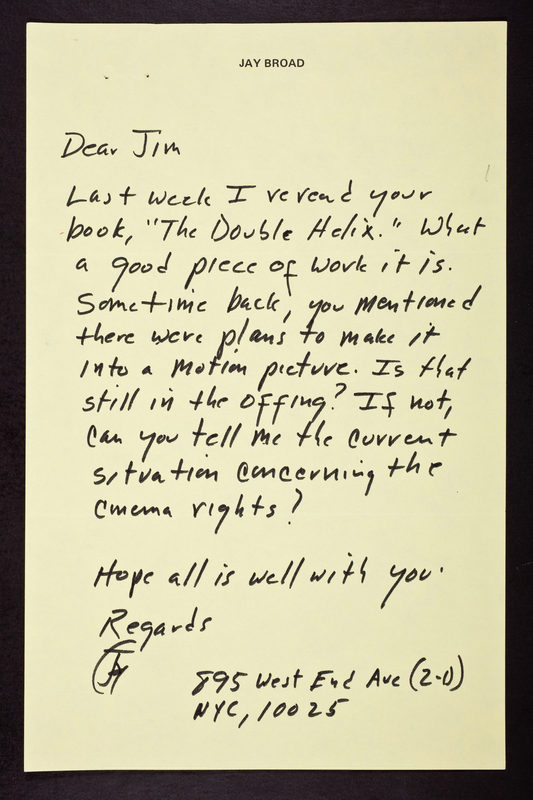 JAY BROAD
Dear Jim
Last week I reread your
book, "The Double Helix." What
a good piece of work it is.
Sometime back, you mentioned
there were plans to make it
into a motion picture. Is that
still in the offing? If not,
can you tell me the current
situation concerning the
cinema rights?
Hope all is well with you.
Regards
Jay
895 West End Ave (2-D)
NYC, 10025